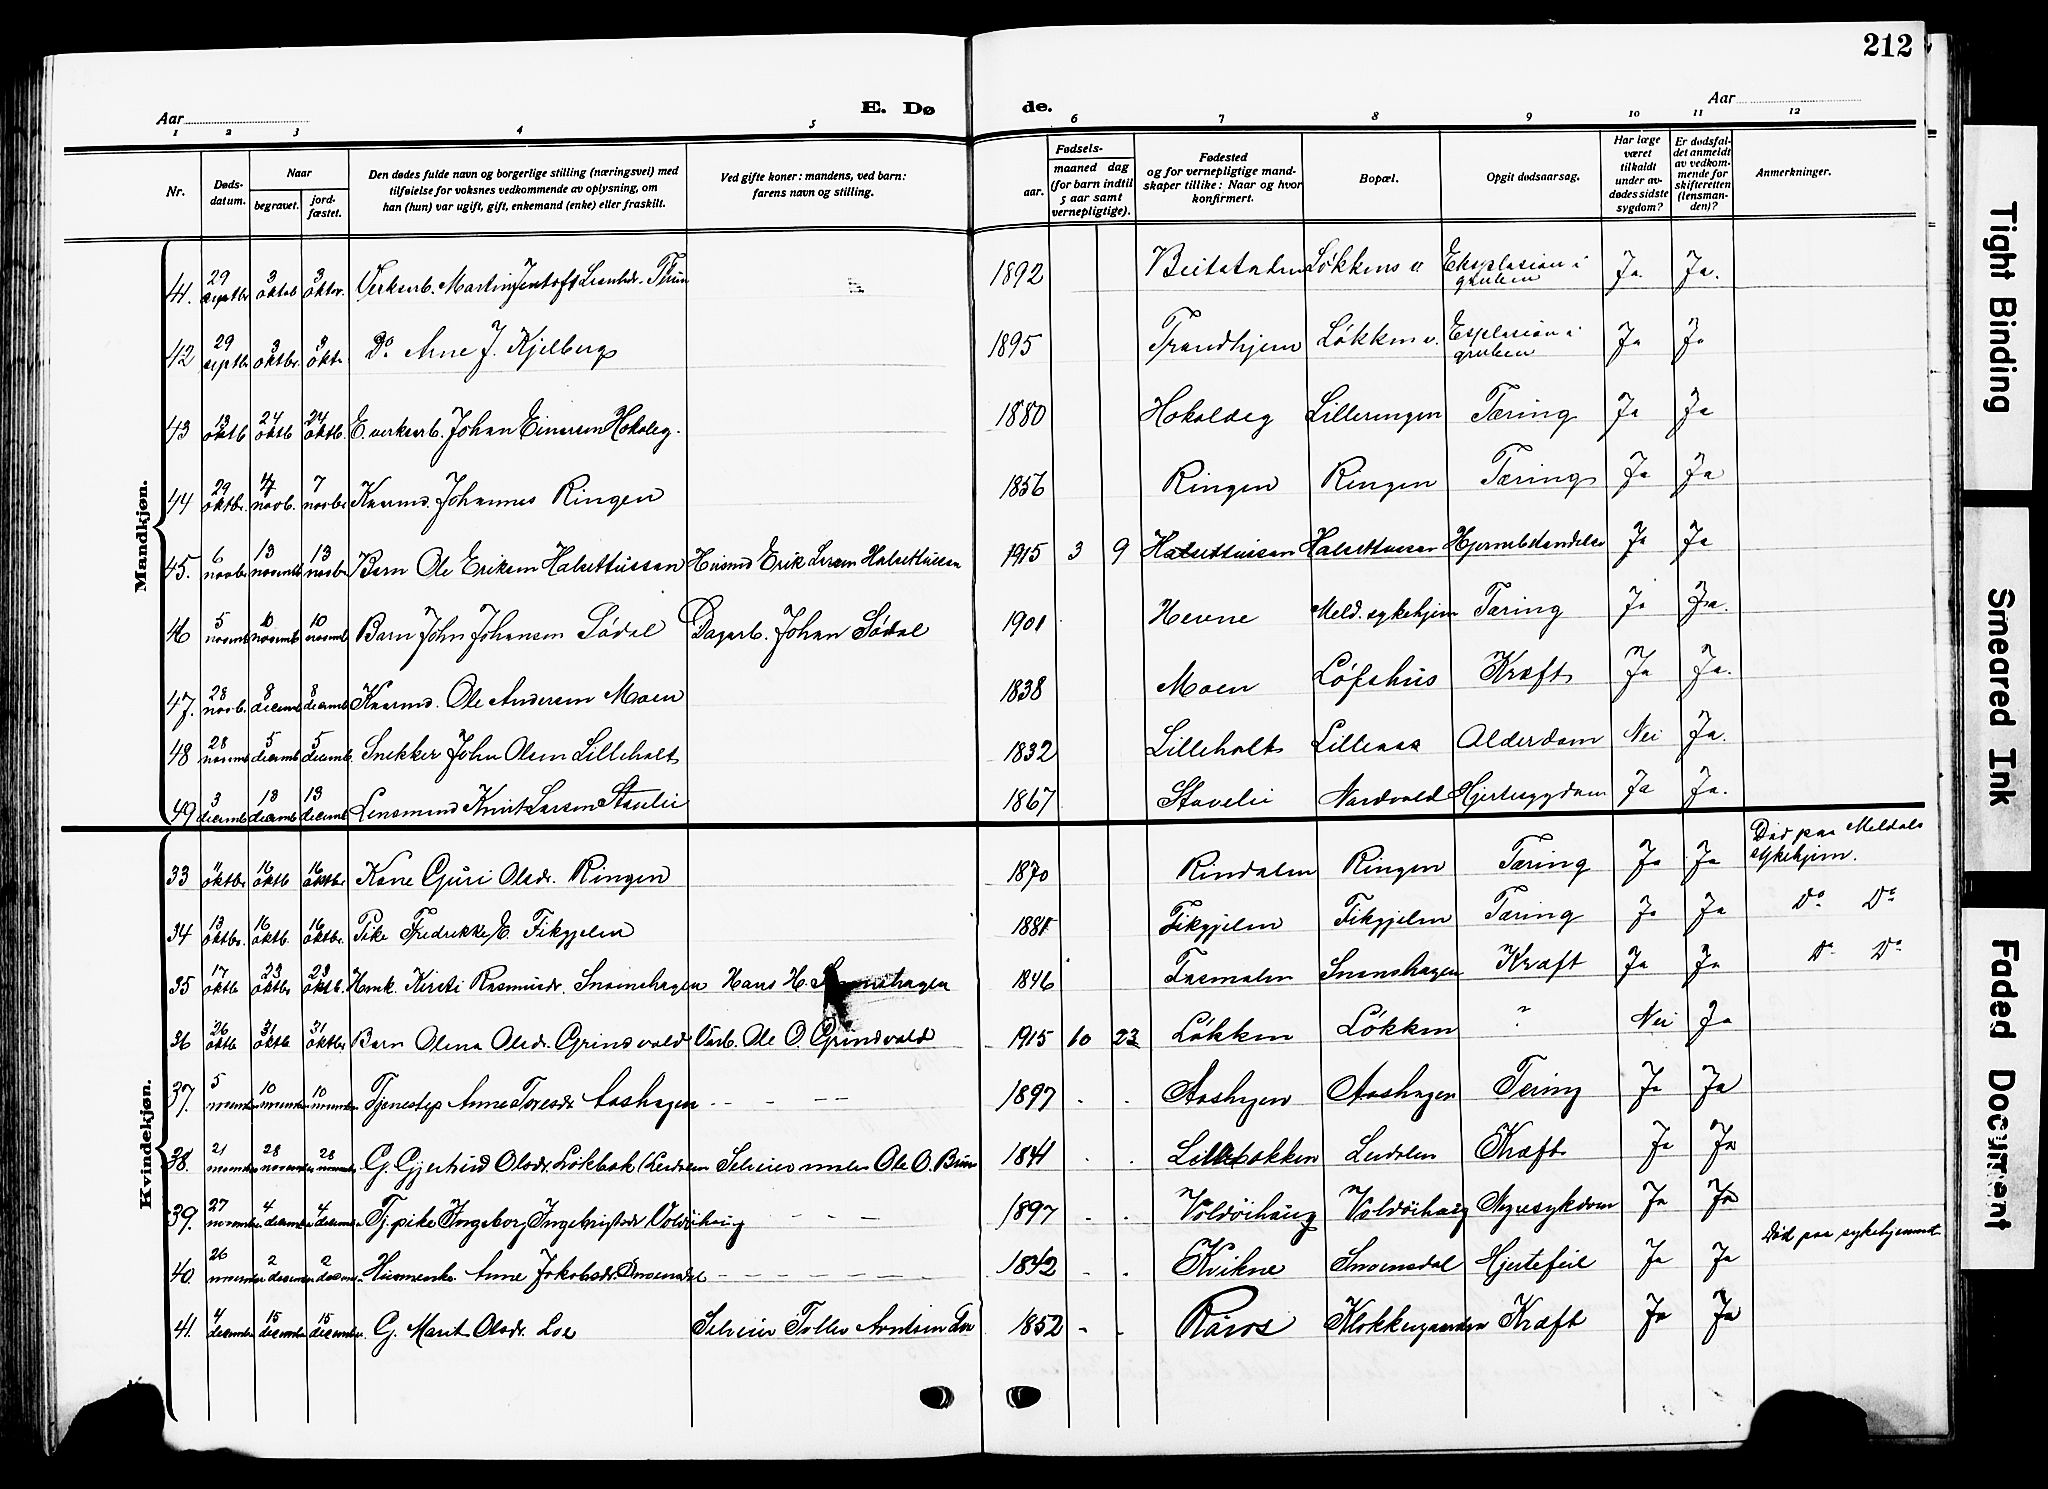 212
E. Dø de.
Aar
Aar
1 2 3 4 5 6 7 8 9 10 11 12
Nr.
Døds-
datum.
Naar
begravet.
jord-
fæstet.
Den dødes fulde navn og borgerlige stilling (næringsvei) med
tilføielse for voksnes vedkommende av oplysning, om
han (hun) var ugift, gift, enkemand (enke) eller fraskilt.
Ved gifte koner: mandens, ved barn:
farens navn og stilling.
Fødsels-
aar.
maaned dag
(for barn indtil
5 aar samt
vernepligtige).
Fødested
og for vernepligtige mand-
skaper tillike: Naar og hvor
konfirmert.
Bopæl.
Opgit dødsaarsag.
Har læge
været
tilkaldt
under av-
dødes sidste
sygdom?
Er dødsfal-
det anmeldt
av vedkom-
mende for
skifteretten
(lensman-
den)?
Anmerkninger.
Mandkjøn.
41. 29 septbr 3 oktob 3 oktbr. Verksarb. Martin Jentoft 1892 Løkkens v Eksplosion i gruben Ja Ja.
42 29 septbr 3 oktbr. 3 okt. Do Arne J. Kjelberg 1895 Trondhjem Løkken v. Esplosion i gruben Ja Ja
43 13 oktb 24 oktb 24 oktb. E. verksarb. Johan Einersen Hokaleg. 1880 Hokaleg Lilleringen Tæring Ja Ja
44 29 oktbr. 7 novb. 7 novbr Kaarmd. Johannes Ringen 1856 Ringen Ringen Tæring Ja Ja
45. 6 novbr 13 novemb 13 novbr Barn Ole Eriksen Halsettussan Husmd Erik Larsen Halsettussan 1915 3 9 Halsettussan Halsettussan Hjernebetændelse Ja Ja
46 5 novemb 10 novemb 10 novemb Barn John Johansen Sødal Dagarb. Johan Sødal 1901 Hevne Meld. sykehjem Tæring Ja Ja.
47. 28 novb. 8 decemb 8 decemb Kaarmd. Ole Andersen Moen 1838 Moen Løfshus Kræft Ja Ja.
48 28 novemb 5 decemb 5 decemb. Snekker John Olsen Lilleholt 1832 Lilleholt Lilleaas Alderdom Nei Ja.
49 3 decemb 13 decemb 13 decemb Lensmand Knut Larsen Stavlei 1867 Stavelei Nordvold Hjertesygdom Ja Ja.
Kvindekjøn.
33 11 oktbr 16 oktb 16 oktbr Kone Guri Olsdr. Ringen 1870 Rindalen Ringen Tæring Ja Ja Død paa Meldals sykehjem.
34 13 oktbr. 16 oktb. 16 oktbr. Pike Fredrikke E. Fikgjelen 1881 Fikgjelen Fikgjelen Tæring Ja Ja Do Do
35 17 oktb 23 oktbr 23 oktb. Husk. Kirsti Rasmusdr. Snoenshagen Hans H. Snoenshagen 1846 Snoenshagen Kræft Ja Ja Do Do
36 26 oktb 31 oktb 31 oktbr. Barn Olena Olsdr. Grindvold Varb. Ole O. Grindvold 1915 10 23 Løkken Løkken ? Nei Ja
37. 5 10 10 Anne Toresdr Aashagen - - - - 1897 - - Aashagen Aashagen Tering Ja Ja
38. 21 28 28 G. Gjertrud Olsdr. Løkbak (Lerdalen Selveier Ole O. Bum 1841 - - Lillebakken Lerdalen Kræft Ja Ja
39. 27 4 decemb 4 decemb Tj.pike Ingeborg Ingebrigtsdr Voldøihaug - - - 1897 - - Voldøihaug Voldøihaug Nyresykdom Ja Ja
40. 26 2 2 Anne Jakobsdr. Snoensdal - - - - - - 1842 - - Kvikne Snoensdal Hjertefeil Ja Ja Død paa sykehjemmet
41. 4 decembr 15 decembr 15 decembr. G. Marit Olsdr. Loe Selveier Tollev Arntsen Loe 1852 - - Røros Klokkergaarden Kræft Ja Ja
Tight Binding
Smeared Ink
Faded Document